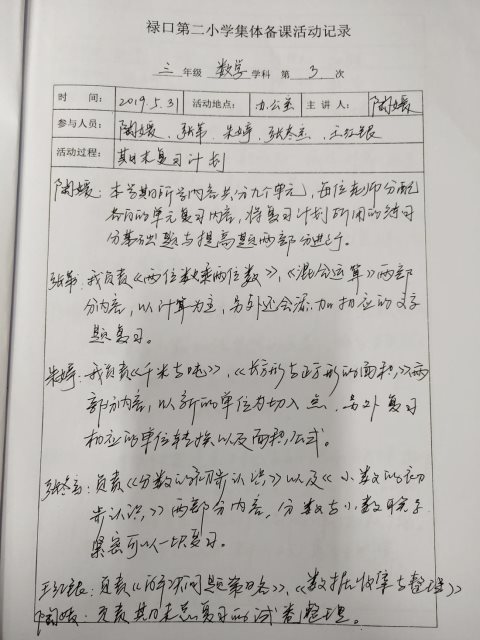 禄口第二小学集体备课活动记录
三 年级 数学 学科 第 3 次
时 间： 2019.5.31 活动地点： 办公室 主 讲 人： 陶媛
参与人员： 陶媛、张第、朱婷、张冬云、王红银
活动过程： 期末复习计划
陶媛：本学期所学内容共分九个单元，每位老师分配
各自的单元复习内容，将复习计划所用的练习
分基础题与提高题两部分进行。
我负责《两位数乘两位数》，《混合运算》两部
分内容，以计算为主，另外还会添加相应的文字
题复习。
朱婷：我负责《千米与吨》，《长方形与正方形的面积》两
部分内容，以新的单位为切入点，另外复习
相应的单位转换以及面积公式。
负责《分数的初步认识》以及《小数的初
步认识》两部分内容，分数与小数联系
紧密可以一块复习。
负责《解决问题策略》、《数据收集与整理》
陶媛：负责期末总复习的试卷整理。